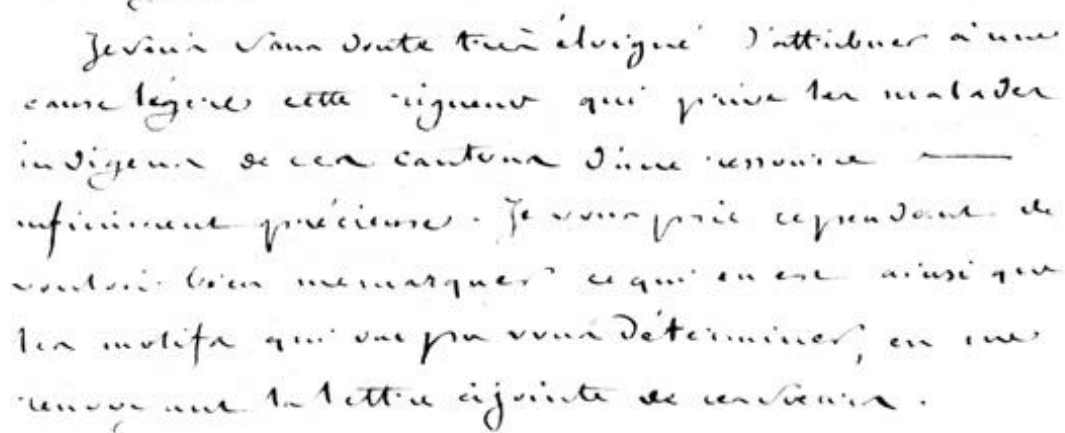 Je suis sans doute très éloigné d'attribuer à une
cause légère cette rigueur qui prive les malades
indigens de ces cantons d'une ressource
infiniment précieuse. Je vous prie cependant de
vouloir bien me marquer ce qui en est ainsi que
les motifs qui ont pu vous déterminer, en me
renvoyant la lettre cijointe de ces